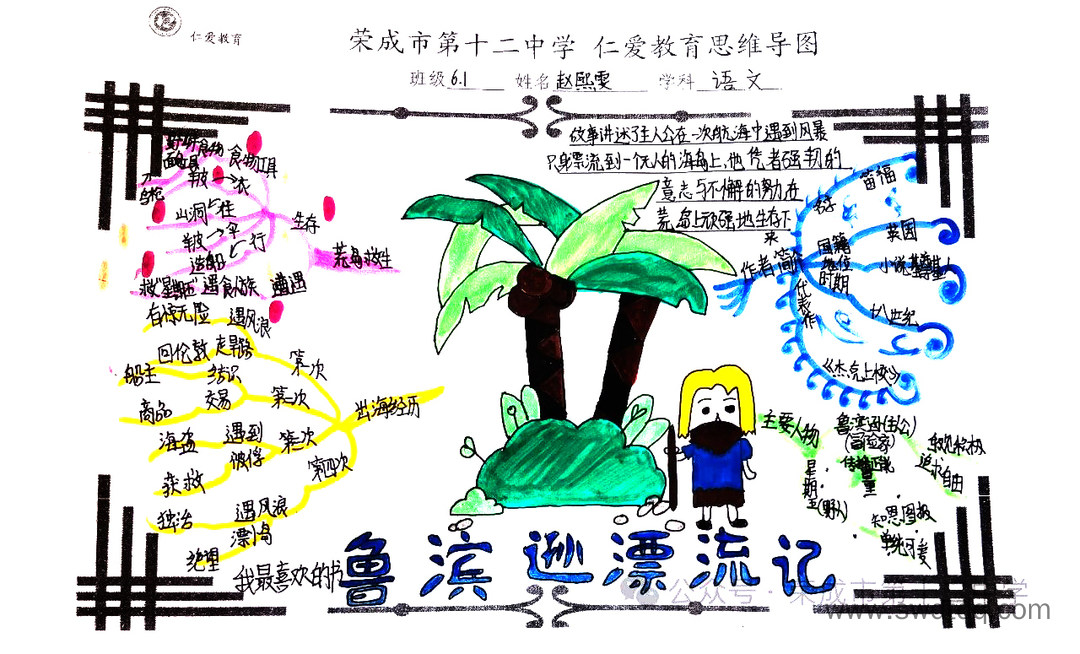 仁爱教育
荣成市第十二中学 仁爱教育思维导图
班级 6.1 姓名 赵熙雯 学科 语文
故事讲述了主人公在一次航海中遇到风暴
只身漂流到一个无人的海岛上,他凭着强韧的
意志与不懈的努力在
荒岛上顽强地生存下
来
荒岛救生
生存
食物工具
羊皮→衣
山洞 住
羊皮→伞 行
造船
遭遇
救"星期五" 遇食人族
有惊无险 遇风浪
出海经历
第一次
回伦敦 走旱路
船主 结识
第二次
商品 交易
第三次
海盗 遇到
获救 被俘
第四次
独活 遇风浪
绝望 漂小岛
作者简
名字
笛福
国籍
英国
地位
小说
时期
十八世纪
代表作
《杰克上校》
主要人物
鲁滨逊(主公)
(冒险家)
乐观积极
追求自由
星期五(野人)
知恩图报
我最喜欢的书
鲁滨逊漂流记
公众号·荣成市第
学